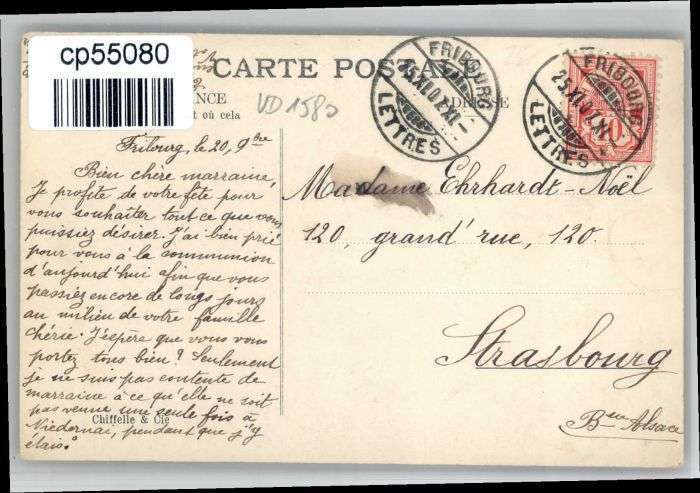 cp55080
CARTE POSTALE
NCE
ADRESSE
t où cela
VD 1580
FRIBOURG
25.XI.07.XI–
LETTRES
FRIBOURG
25.XI.07.XI–
LETTRES
10
Fribourg, le 20, 9bre
Bien chère marraine,
Je profite de votre fête pour
vous souhaiter tout ce que vous
puissiez désirer. J'ai bien prié
pour vous à la communion
d'aujourd'hui afin que vous
passiez encore de longs jours
au milieu de votre famille
chérie. J'espère que vous vous
portez tous bien? Seulement
je ne suis pas contente de
marraine à ce qu'elle ne soit
pas venue une seule fois à
Chiffelle & Cie
Niedernai, pendant que j'y
étais.
Madame Ehrhardt-Noël
120, grand' rue, 120.
Strasbourg
Bsse Alsace